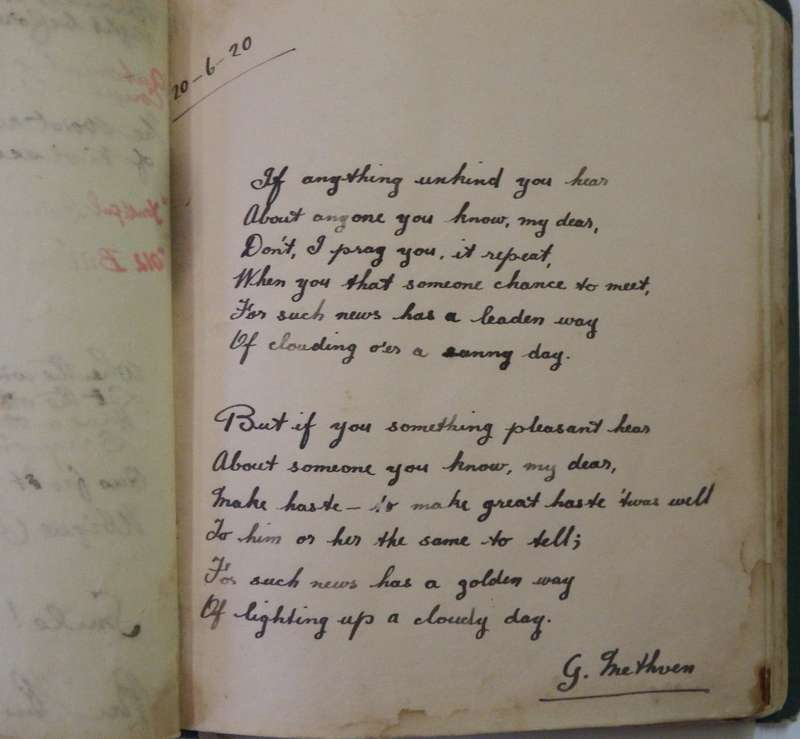 20-6-20
If anything unkind you hear
About anyone you know, my dear,
Don't, I pray you, it repeat,
When you that someone chance to meet,
For such news has a leaden way
Of clouding o'er a sunny day.
But if you something pleasant hear
About someone you know, my dear,
Make haste — to make great haste 'twas well
To him or her the same to tell;
For such news has a golden way
Of lighting up a cloudy day.
G. Methven